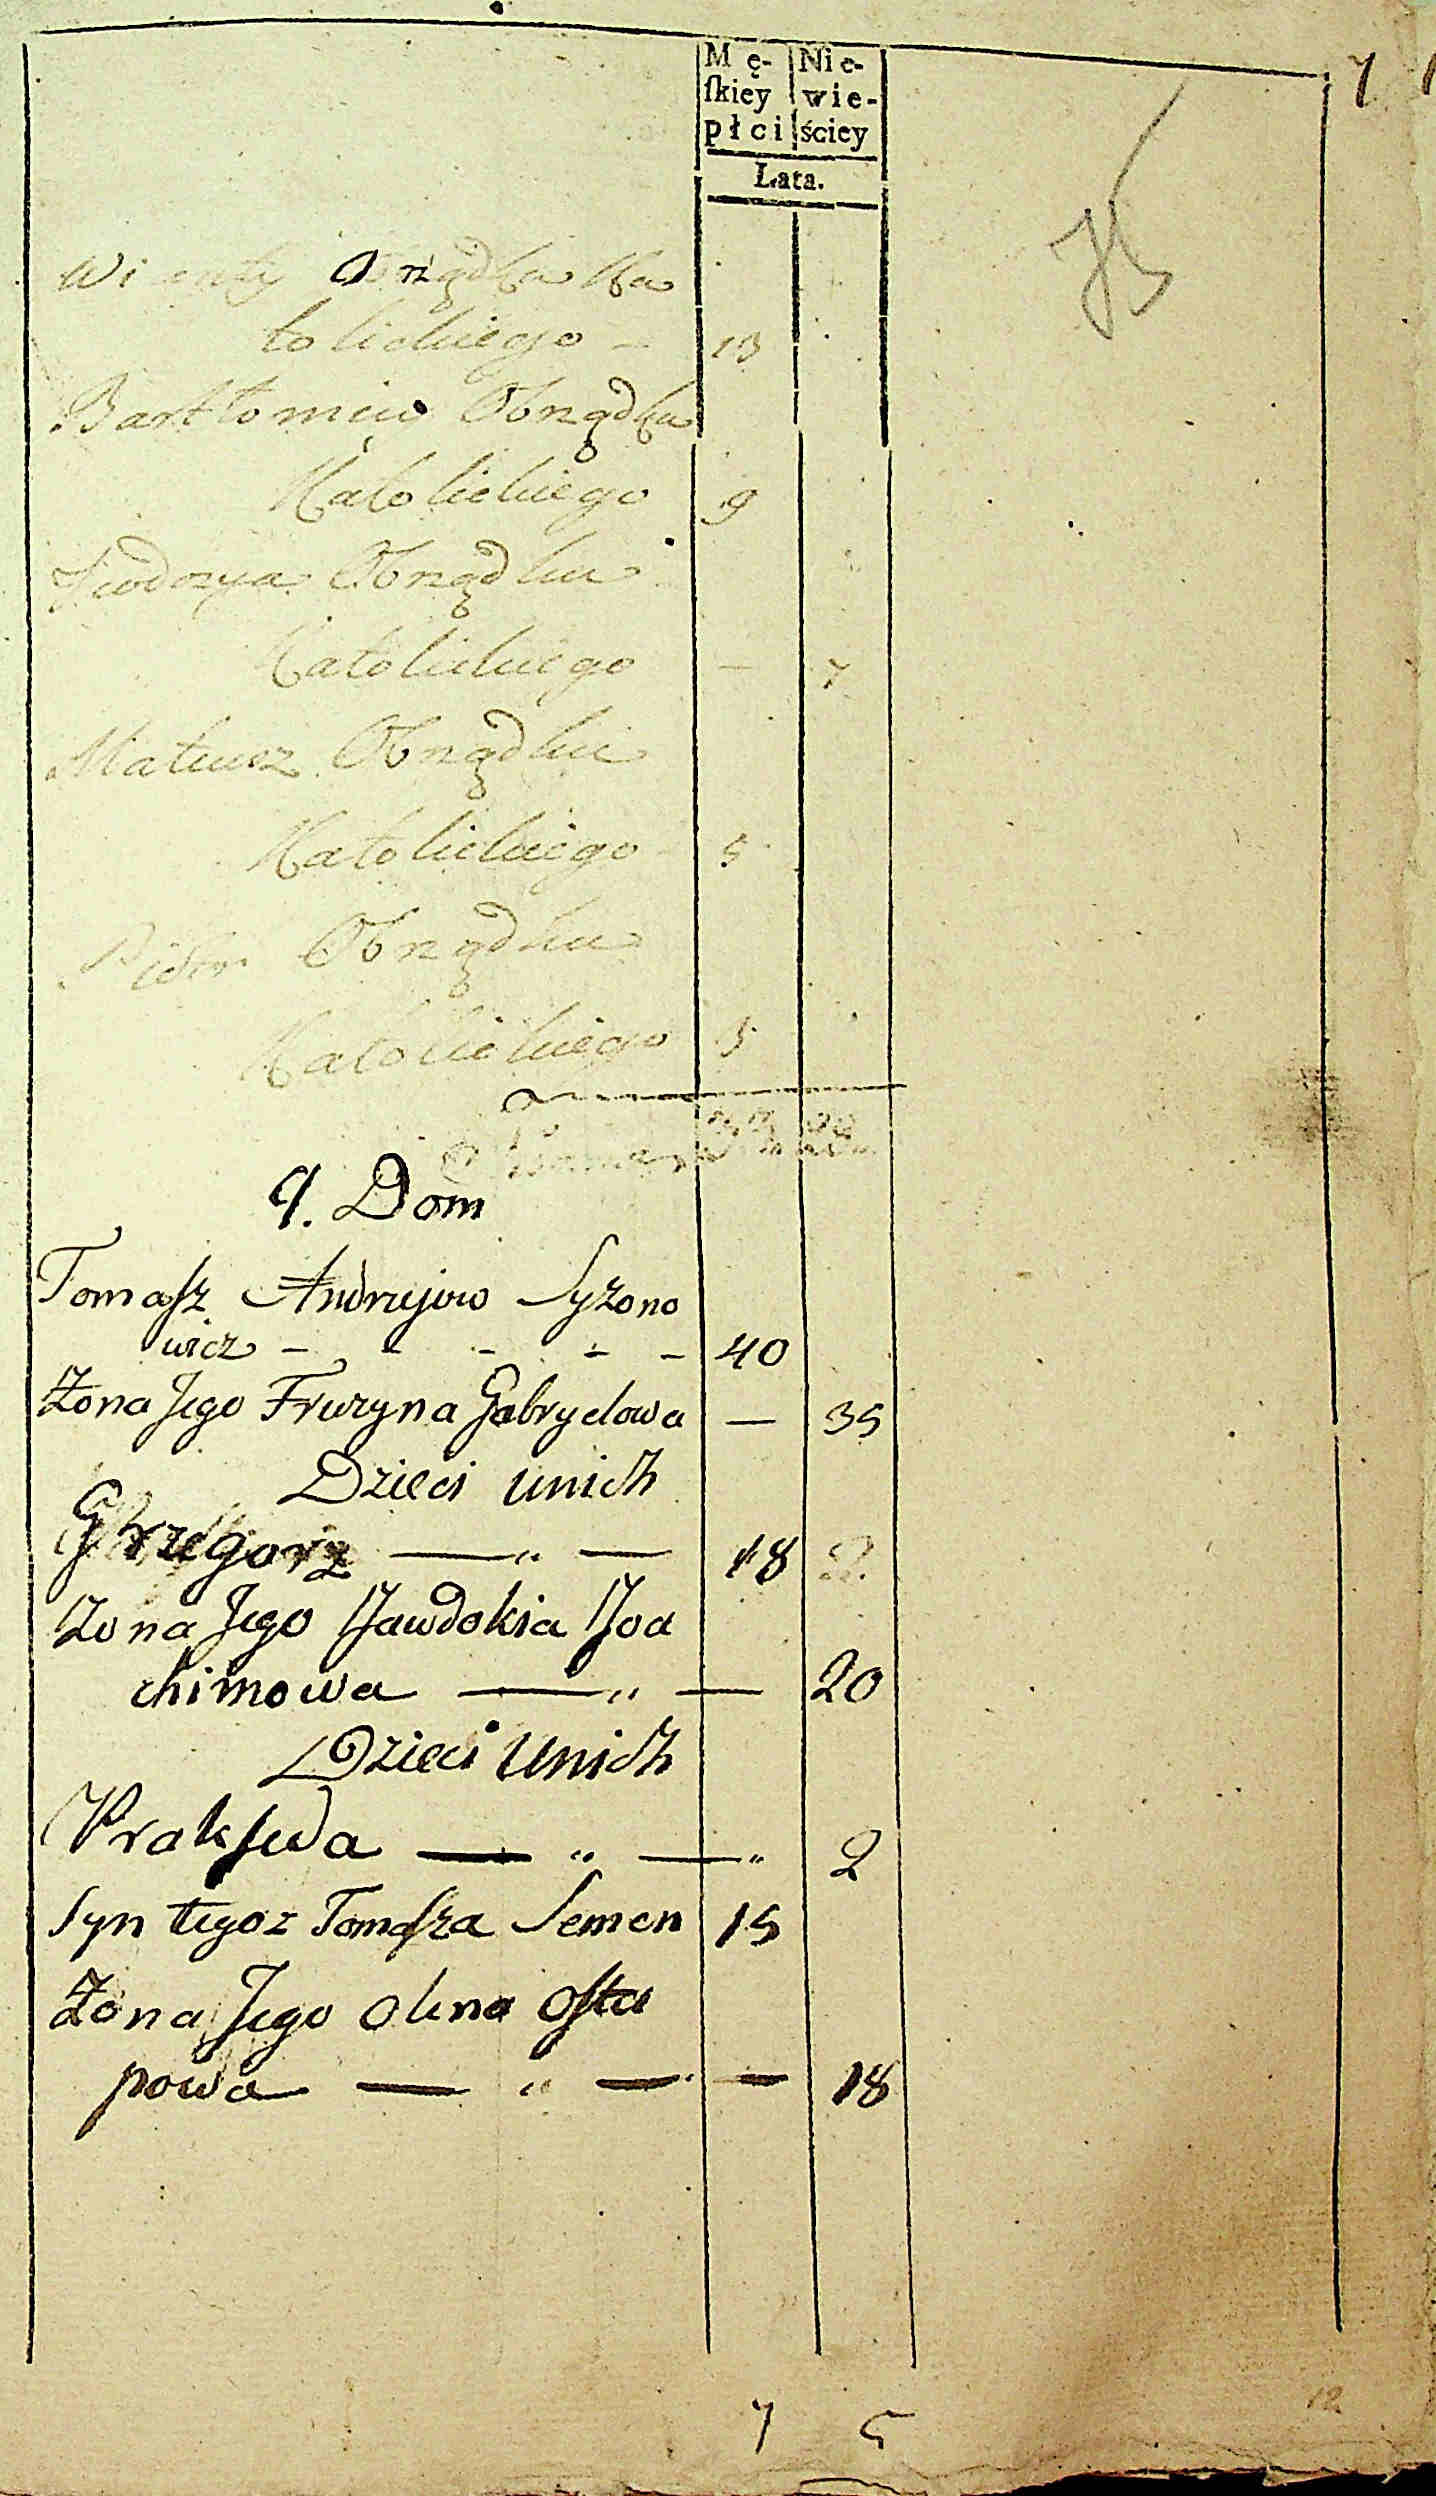 Mę- Nie-
ſkiey wie-
płci ściey
Lata.
7
75
Wi enty Obrządku Ka
tolickiego – 13
Bartłomiey Obrządku
Katolickiego 9
Obrządku
Katolickiego – 7
Mateusz Obrządku
Katolickiego 5
Piotr Obrządku
Katolickiego 3
9. Dom
Tomaſz Andrzejow Syzono
wicz – – – – – 40
Żona Jego Fruzyna Gabryelowa — 35
Dzieci unich
Grzegorz — „ — 18 2
Żona Jego Jawdokia Joa
chimowa — „ — 20
Dzieci Unich
Prakſeda — „ — „ 2
Syn tegoż Tomaſza Semen 15
Żona Jego Olena Oſta
powa — „ — — 18
7 5
12